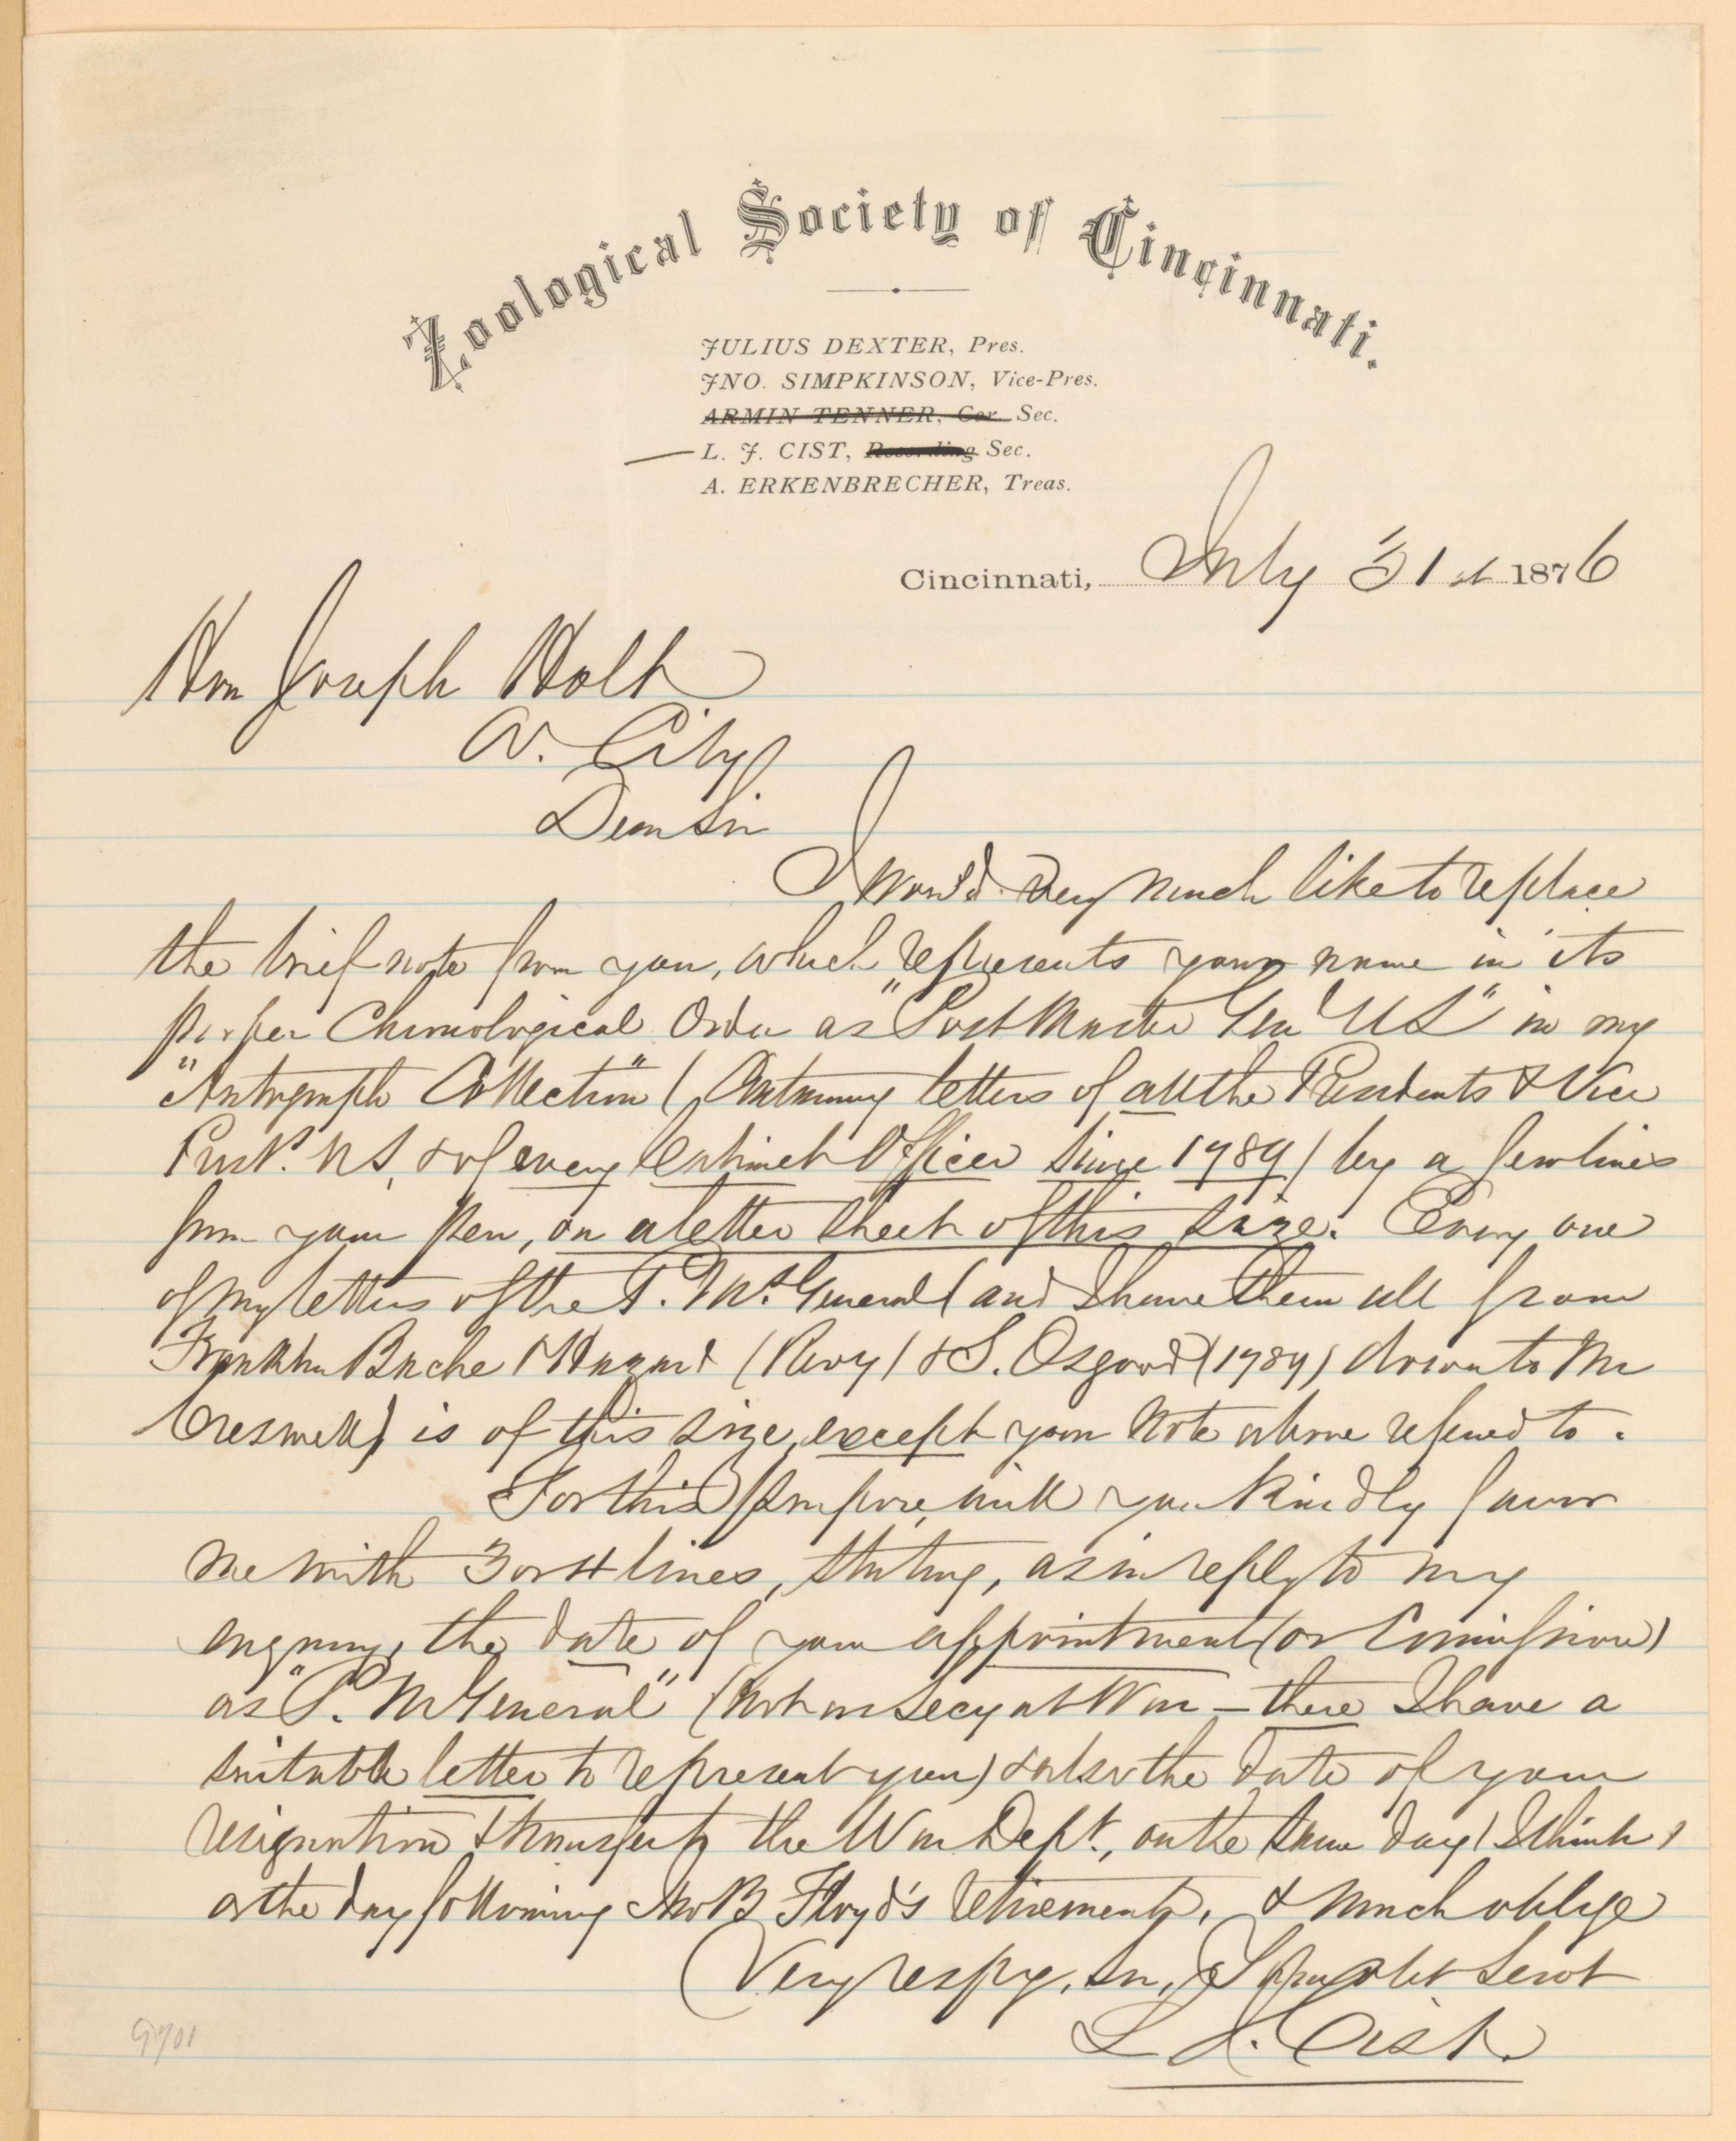 Zoological Society of Cincinnati.
JULIUS DEXTER, Pres.
JNO. SIMPKINSON, Vice-Pres.
ARMIN TENNER, Cor. Sec.
L. J. CIST, Recording Sec.
A. ERKENBRECHER, Treas.
Cincinnati, July 31st 1876
Hon Joseph Holt
W. City
Dear Sir
I would very much like to replace
the brief note from you, which represents your name in its
proper Chronological Order as "Post Master Genl US" in my
"Autograph Collection" (Containing letters of all the Presidents & Vice
Prests. US, & of every Cabinet Officer since 1789) by a few lines
from your pen, on a letter sheet of this size. Every one
of my letters of the P. Mr. General (and I have them all from
Franklin Bache & Hazard (Revy) & S. Osgood (1789) down to Mr
Creswell) is of this size, except your Note above refered to.
For this purpose, will you kindly favor
me with 3 or 4 lines, stating, as in reply to my
enquiry, the date of your appointment (or Comission)
as "P. M General" (Not as Secy at War — there I have a
suitable letter to represent you) & also the date of your
resignation & transfer to the War Dept., on the same day (I think)
or the day following Jno B Floyd's retirement, & much oblige
Very respy, Sir, Yr obt Servt
L J. Cist.
9701